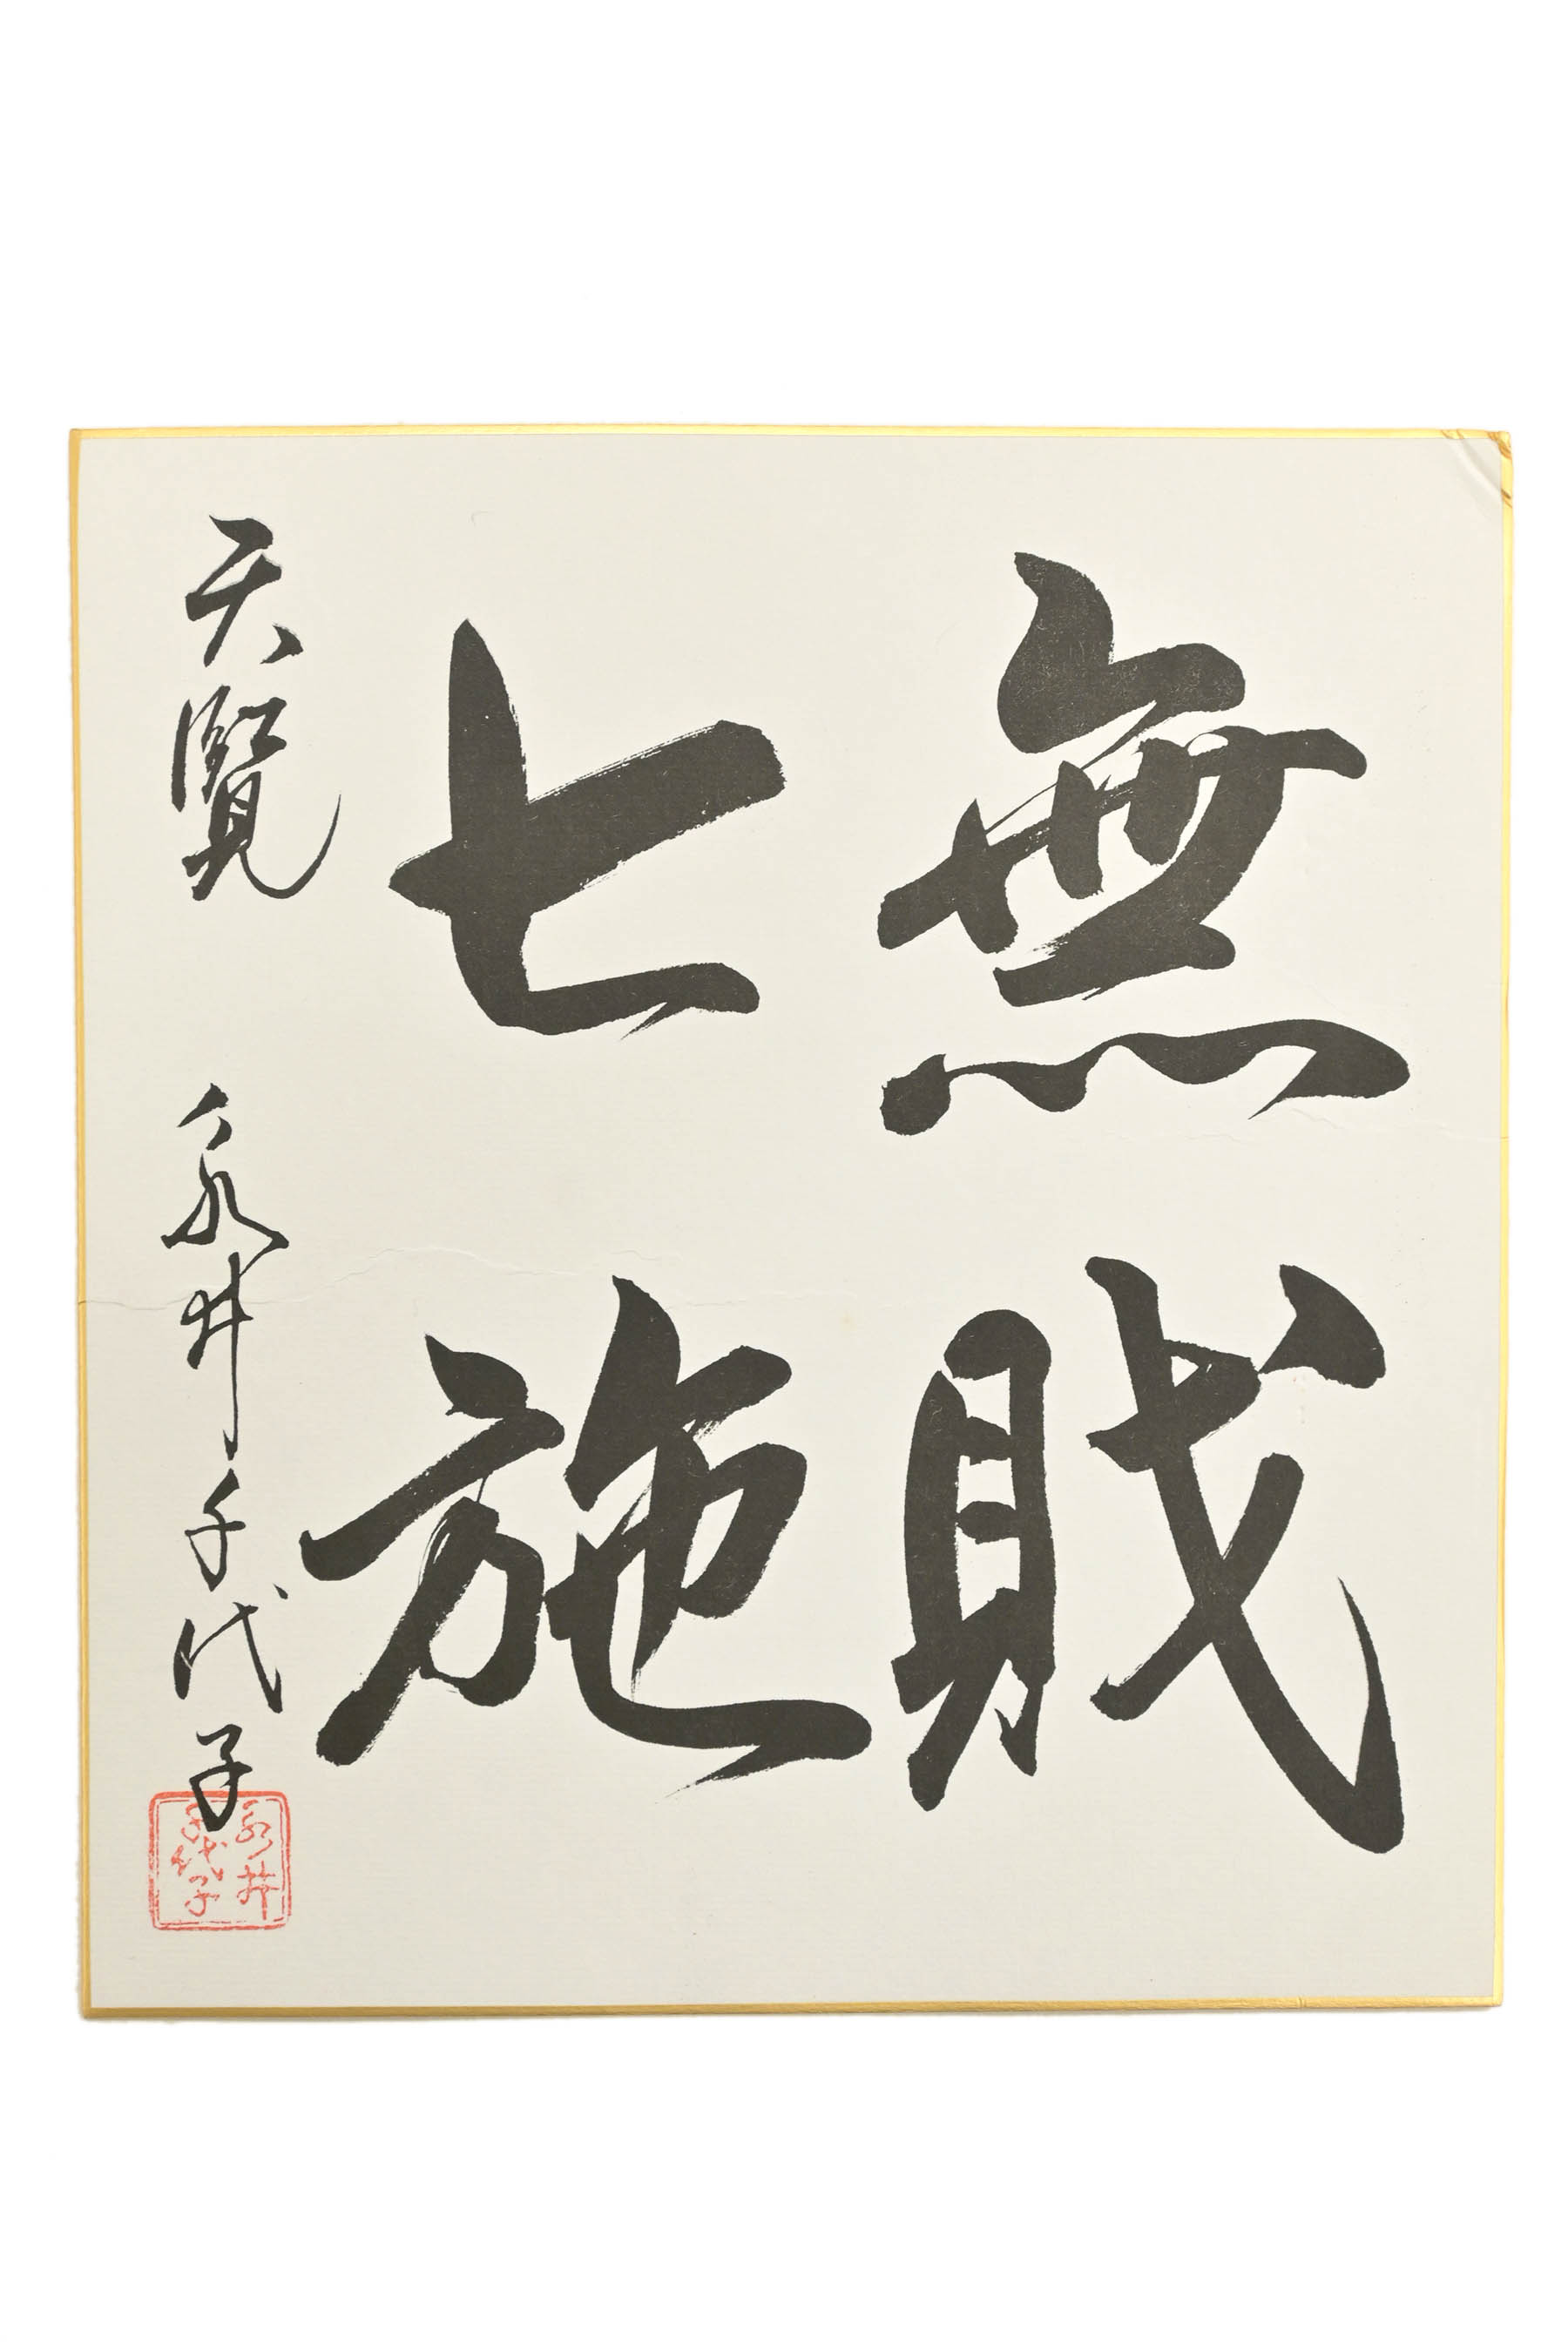 無財
七施
天覧 永井千代子
永井
千代子